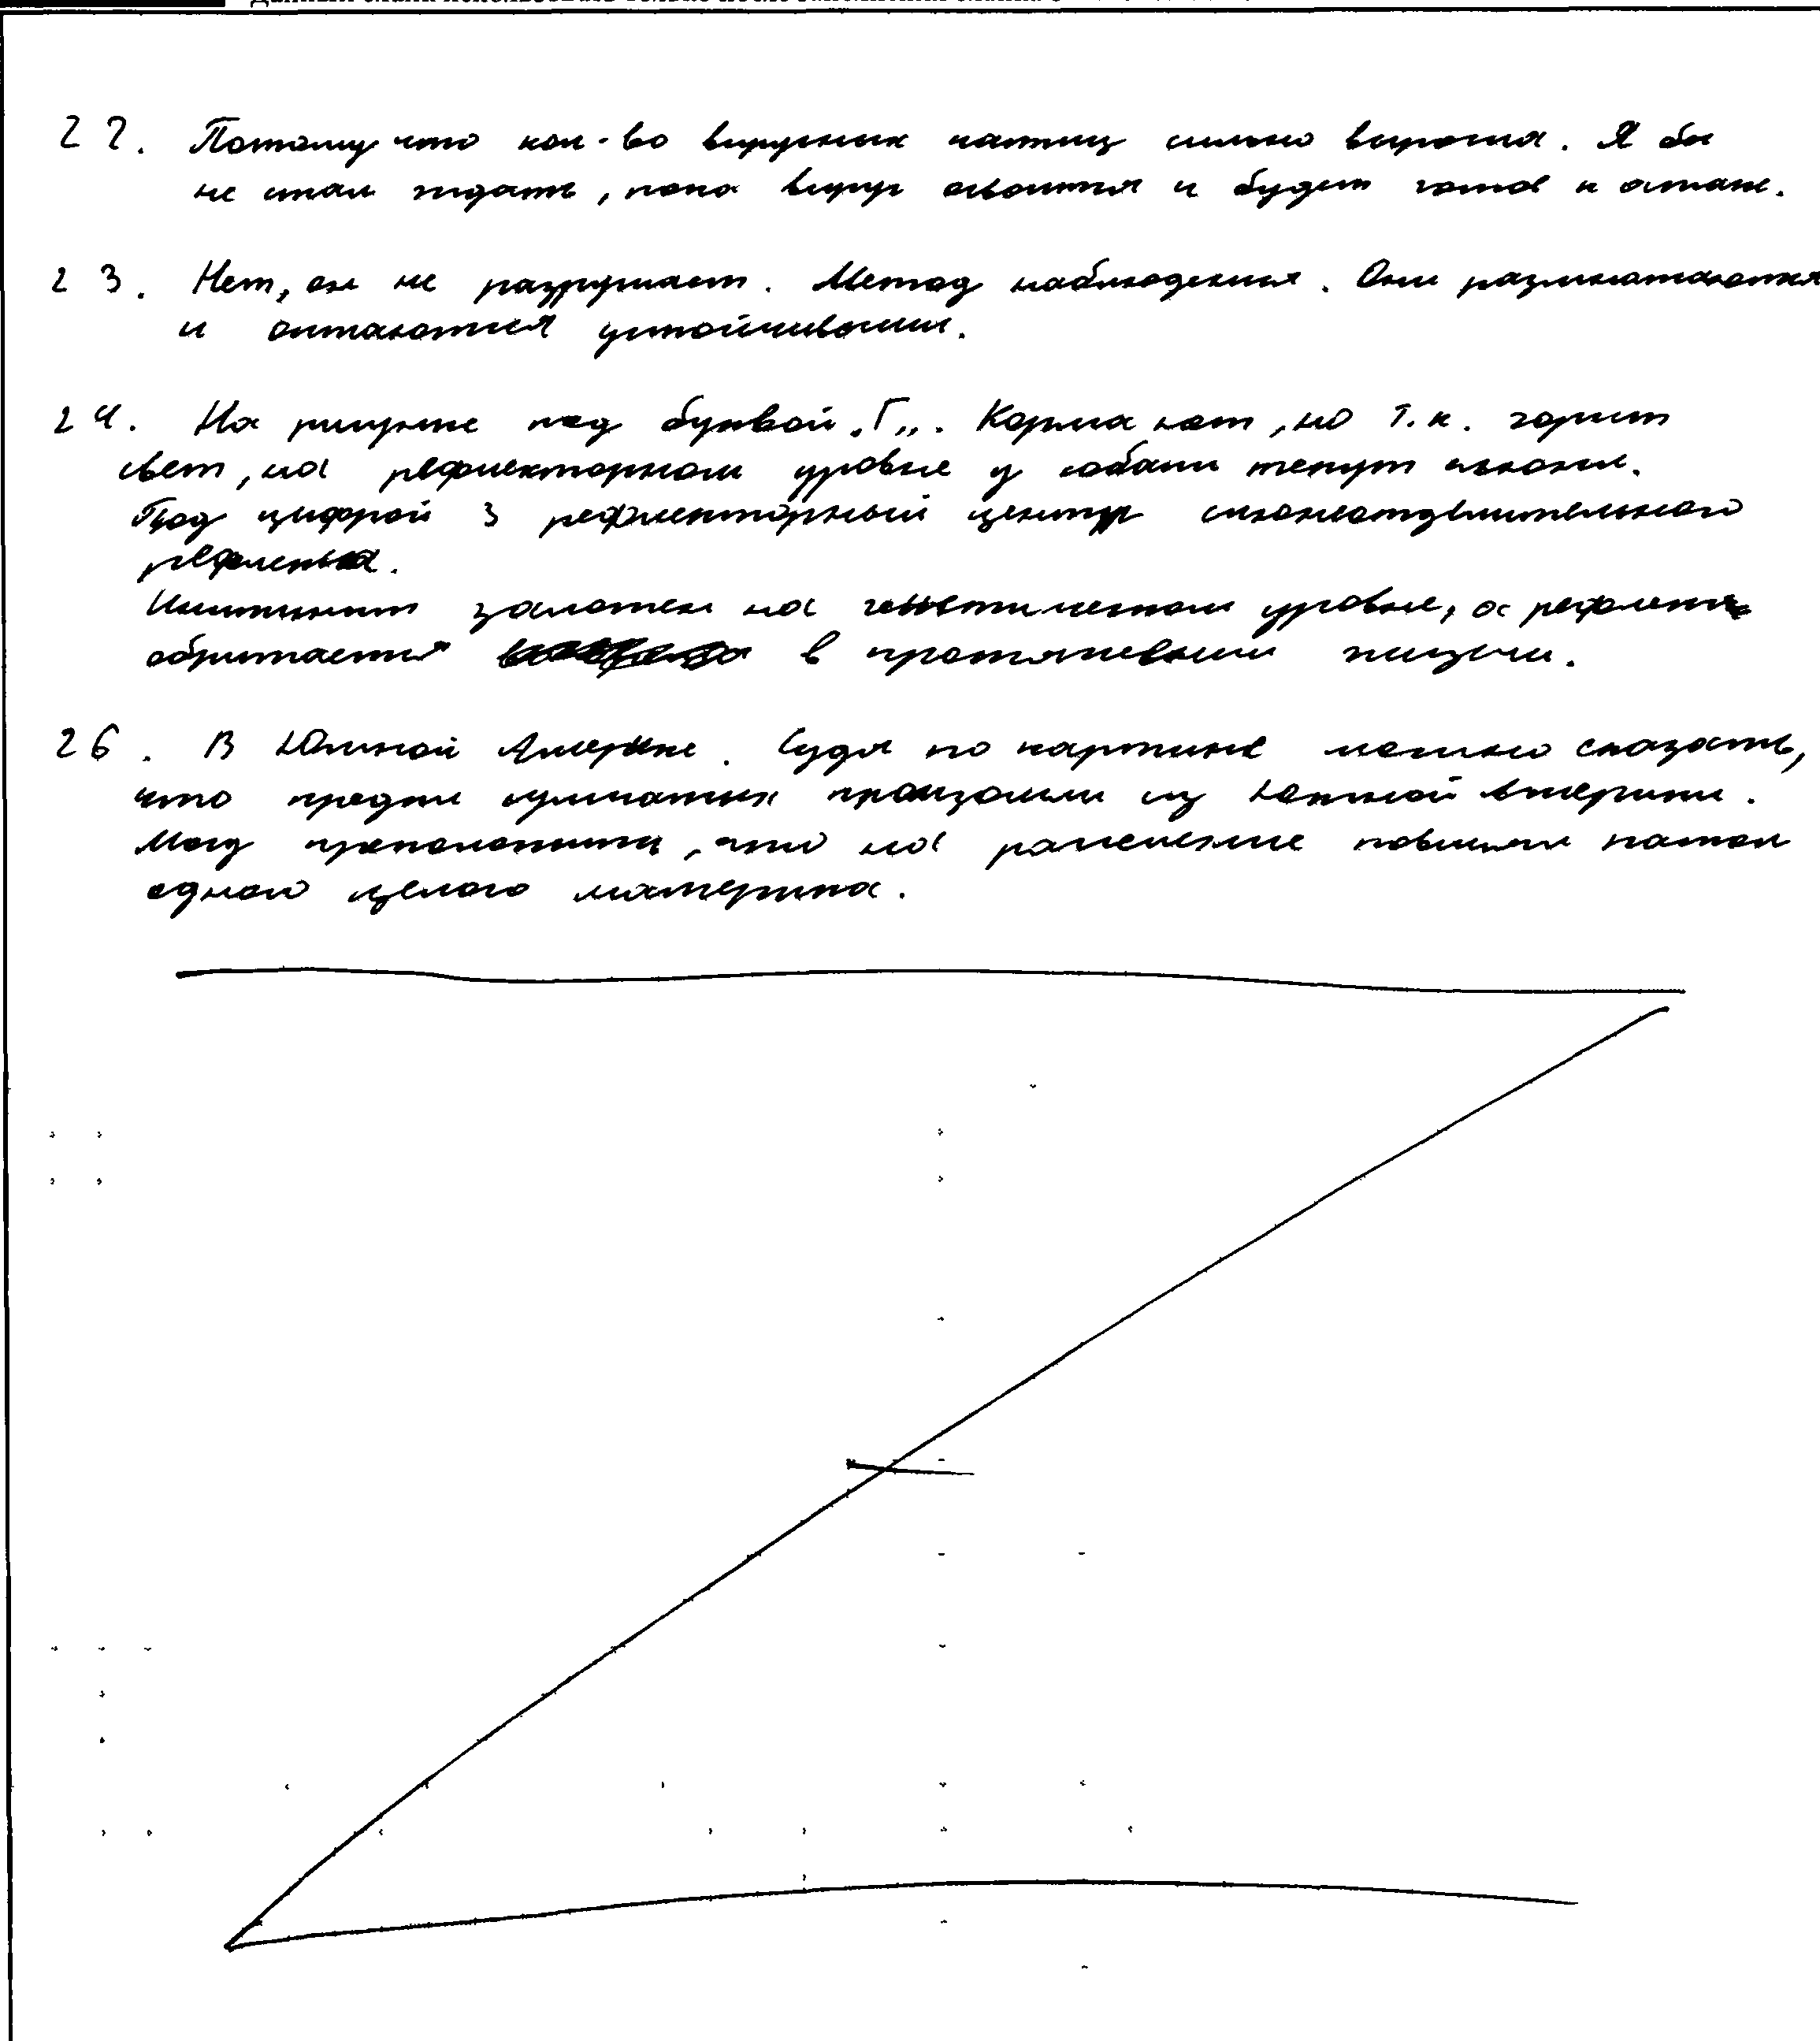 22. Потому что кол-во вирусных частиц сильно выросла. Я бы
не стал ждать, пока вирус освоится и будет готов к атаке.
23. Нет, он не разрушает. Метод наблюдения. Они размножаются
и остаются устойчивыми.
24. На рисунке под буквой "Г". Корма нет, но т.к. горит
свет, на рефлекторном уровне у собаки текут слюни.
Под цифрой 3 рефлекторный центр слюноотделительного
рефлекса.
Инстинкт заложен на генетическом уровне, а рефлекс
обритается в протяжении жизни.
26. В Южной Америке. Судя по картинке можно сказать,
что предки сумчатых произошли из Южной Америки.
Могу препоположить, что на расселение повлиял
одной целого материка.